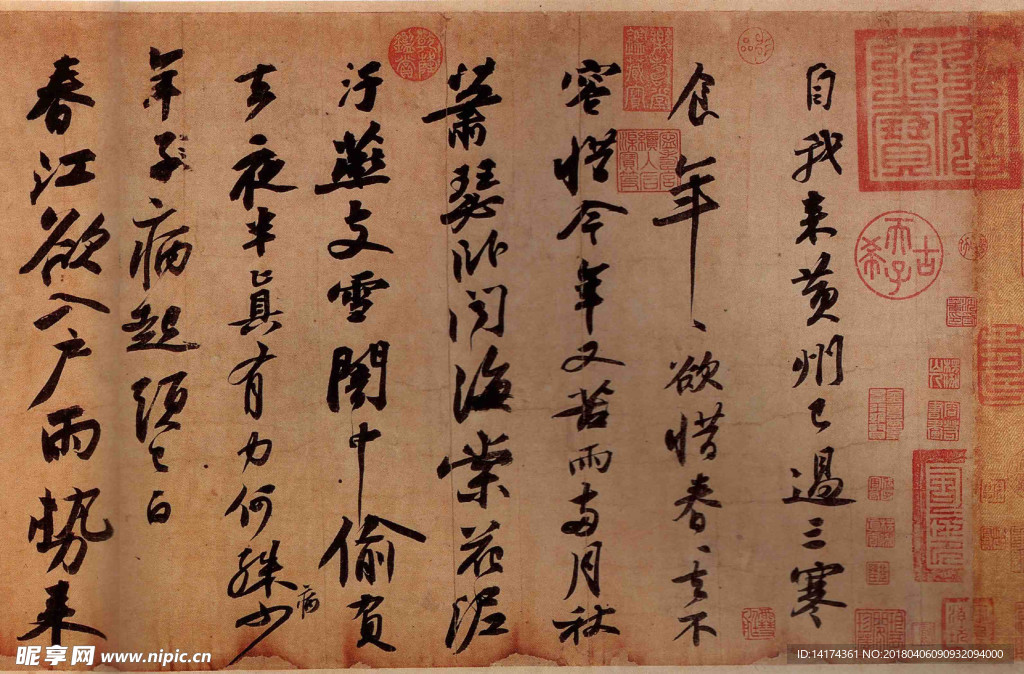 自我来黄州已過三寒
食年〻欲惜春〻去不
容惜今年又苦雨两月秋
蕭瑟卧聞海棠花泥
汙燕支雪闇中偷負
去夜半真有力何殊少
病
年子病起頭已白
春江欲入户雨勢来
昵享网 www.nipic.cn
ID:14174361 NO:20180406090932094000